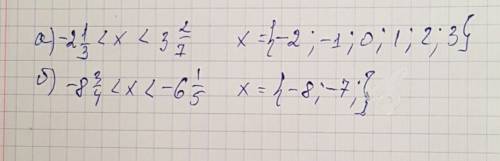 а) -2 1/3 < x < 3 2/7 x = {-2; -1; 0; 1; 2; 3}
б) -8 3/4 < x < -6 1/5 x = {-8; -7; }